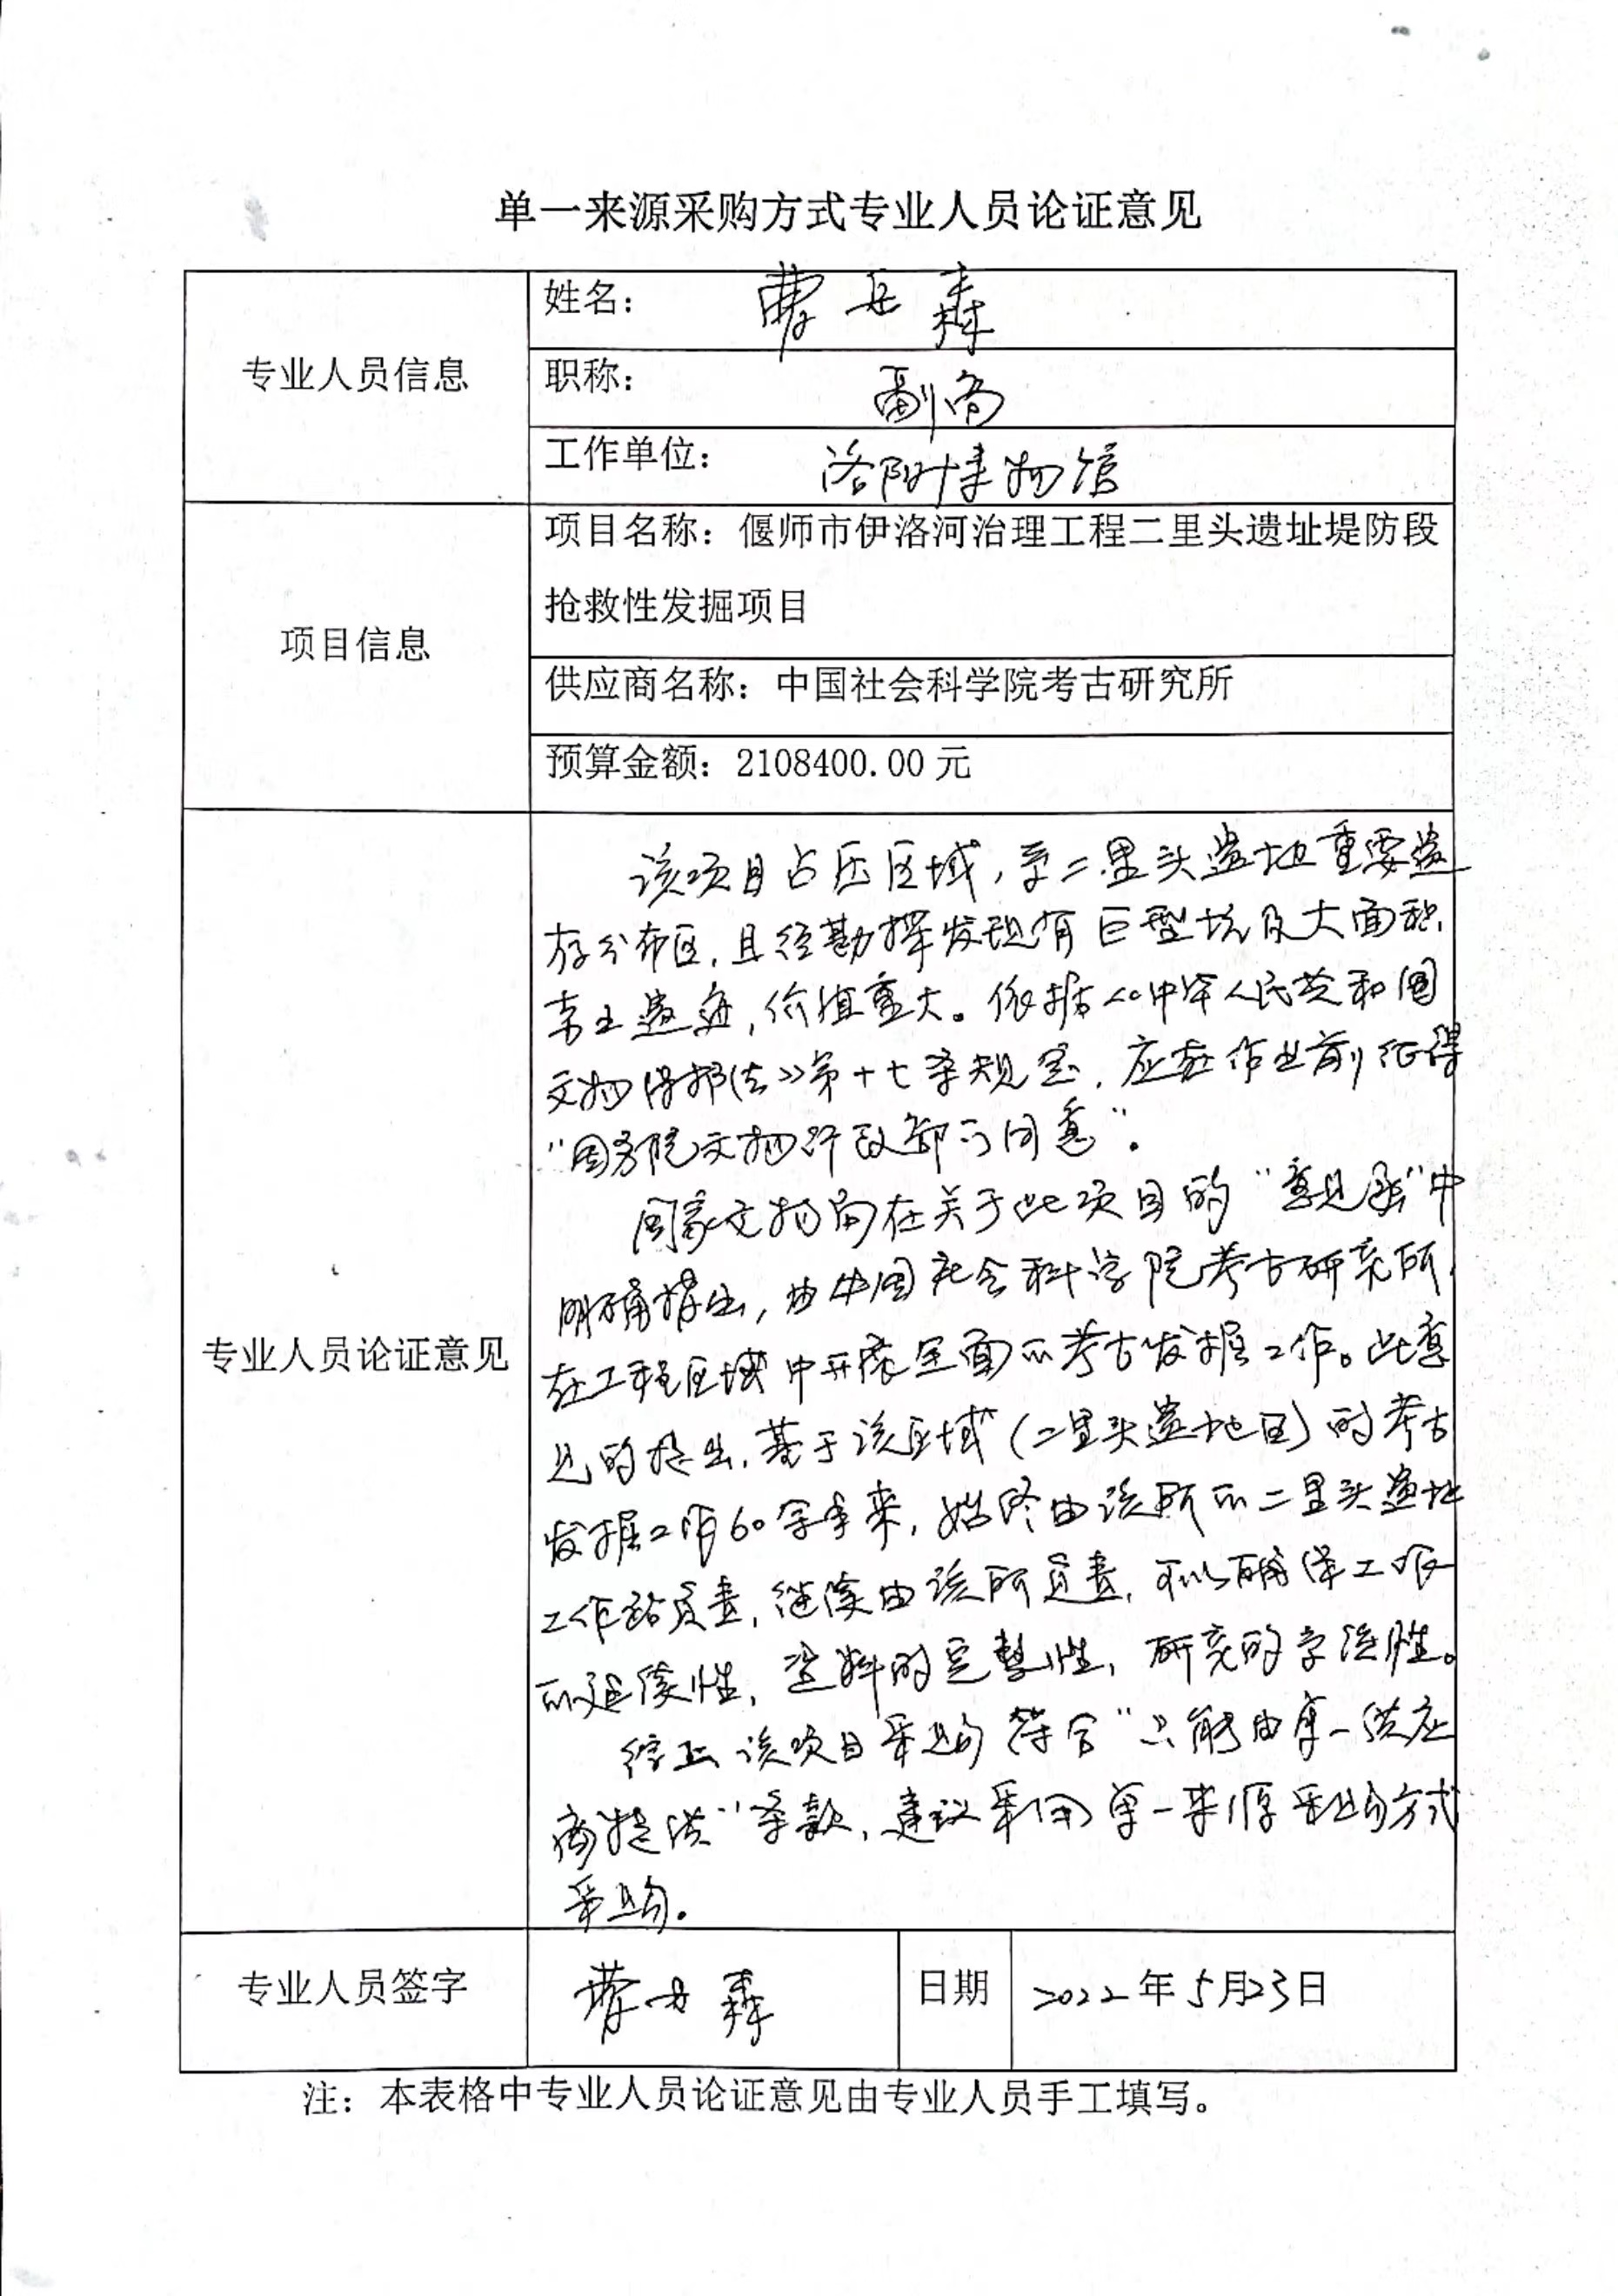 单一来源采购方式专业人员论证意见
专业人员信息
姓名：曹岳森
职称：副高
工作单位：洛阳博物馆
项目信息
项目名称：偃师市伊洛河治理工程二里头遗址堤防段
抢救性发掘项目
供应商名称：中国社会科学院考古研究所
预算金额：2108400.00 元
专业人员论证意见
该项目占压区域，系二里头遗址重要遗
存分布区，且经勘探发现有巨型坑及大面积
夯土遗迹，价值重大。依据《中华人民共和国
文物保护法》第十七条规定，应在作业前征得
“国务院文物行政部门同意”。
国家文物局在关于此项目的“意见函”中
明确提出，由中国社会科学院考古研究所，
在工程区域中开展全面的考古发掘工作。此意
见的提出，基于该区域（二里头遗址区）的考古
发掘工作60余年来，始终由该所的二里头遗址
工作站负责，继续由该所负责，可以确保工作
的延续性，资料的完整性，研究的字洽性。
综上该项目采购符合“只能由单一供应
商提供”条款，建议采用单一来源采购方式
采购。
专业人员签字
日期
2022年5月23日
注：本表格中专业人员论证意见由专业人员手工填写。